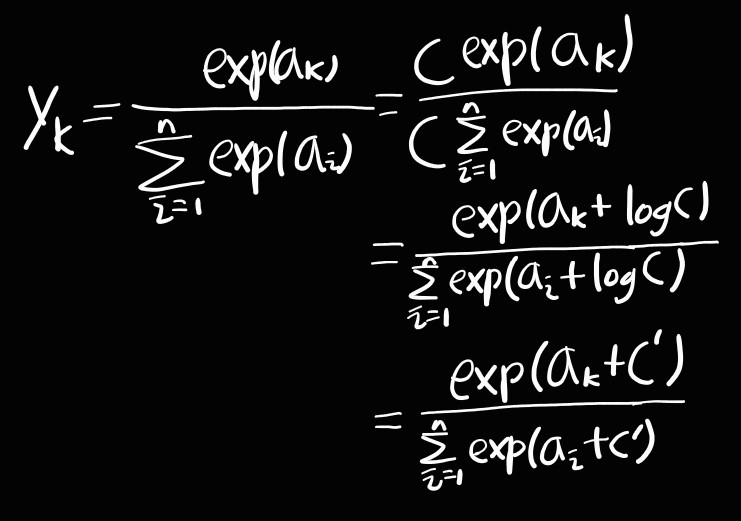 y_k = \frac{exp(a_k)}{\sum_{i=1}^{n} exp(a_i)} = \frac{C exp(a_k)}{C \sum_{i=1}^{n} exp(a_i)}
= \frac{exp(a_k + log C)}{\sum_{i=1}^{n} exp(a_i + log C)}
= \frac{exp(a_k + C')}{\sum_{i=1}^{n} exp(a_i + C')}